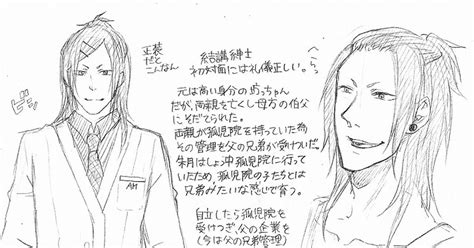 正装
だと
こんなん
ビシッ
結構紳士
初対面には礼儀正しい。
へらっ
元は高い身分の坊っちゃん
だが、両親を亡くし母方の伯父
にそだてられた。
両親が孤児院を持っていた為
その管理を父の兄弟が受けついだ。
朱月はしょ沖孤児院に行って
いたため孤児院の子たちとは
兄弟みたいな感じで育つ。
自立したら孤児院を
受けつぎ、父の企業を
(今は父の兄弟管理)
AM